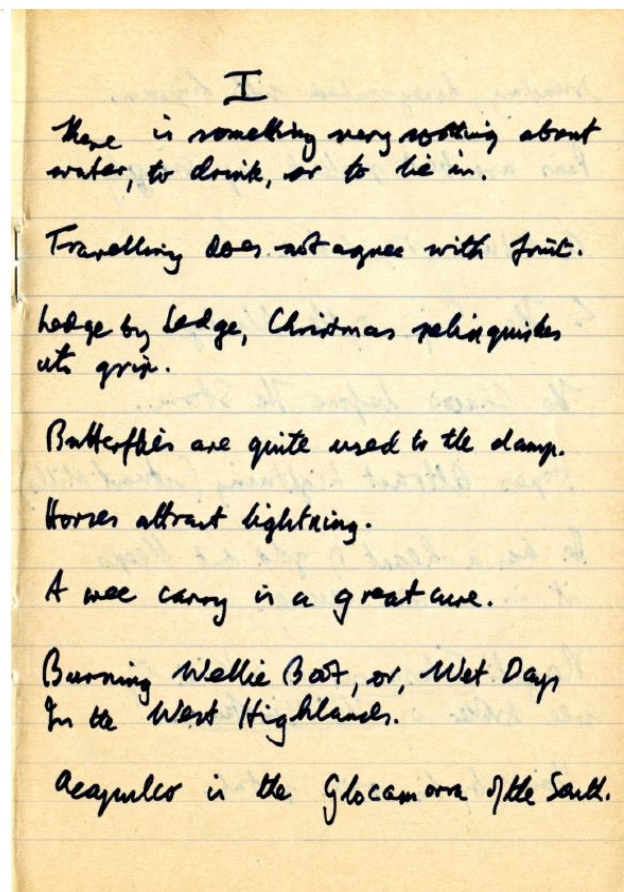 I
There is something very soothing about
water, to drink, or to lie in.
Travelling does not agree with fruit.
Ledge by Ledge, Christmas relinquishes
its grip.
Butterflies are quite used to the damp.
Horses attract lightning.
A wee carry is a great cure.
Burning Wellie Boot, or, Wet Days
In the West Highlands.
Acapulco is the Glocamorra of the South.